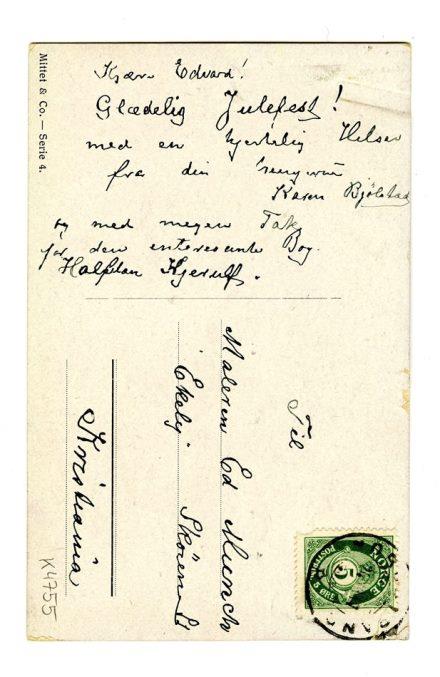 Mittet & Co. — Serie 4.
Kjære Edvard!
Glædelig Julefest!
med en hjertelig Hilsen
fra din
Karen Bjølstad
og med megen Tak
for den interesante Bog.
Halfdan Kjerulf.
Til
Maleren Ed Munch
Ekely Skøien St
Kristiania
NORGE
POSTFRIM
5
ØRE
K4755